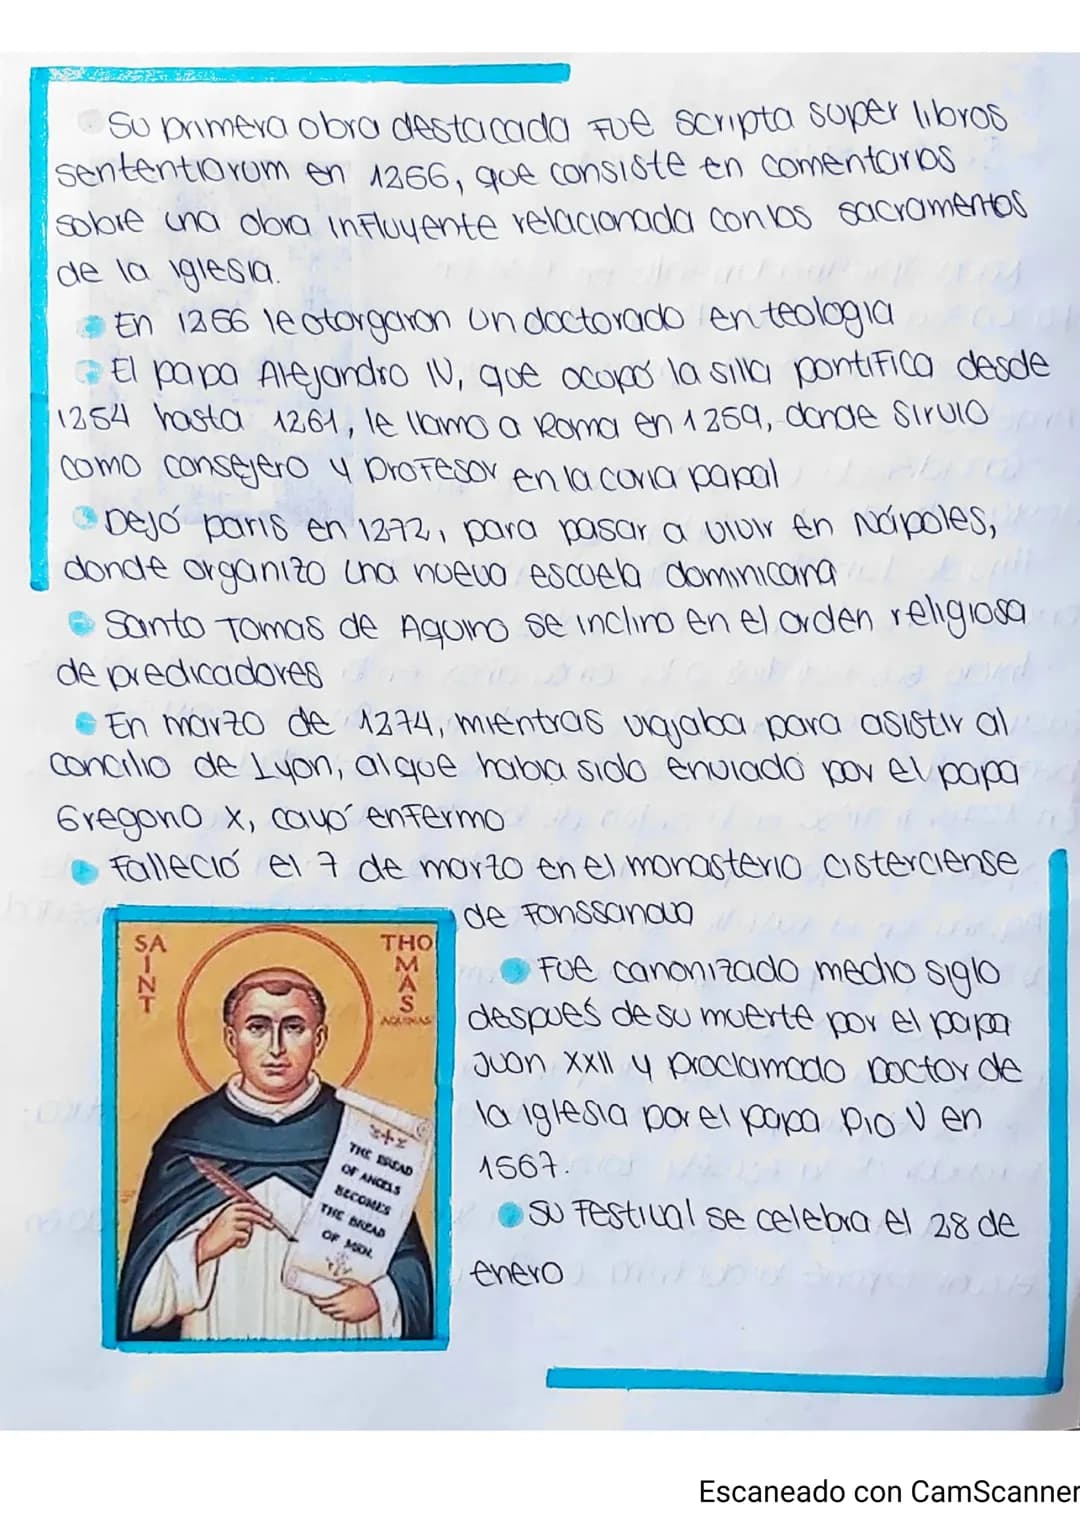 Su primera obra destacada Fue scripta super libros
sententiarum en 1266, que consiste en comentarios
sobre una obra influyente relacionada con los sacramentos
de la iglesia.
En 1266 le otorgaron un doctorado en teologia
El papa Alejandro IV, que ocupó la silla pontifica desde
1254 hasta 1261, le llamo a Roma en 1259, donde sirvio
como consejero y profesor en la curia papal
Dejó paris en 1272, para pasar a vivir en Nápoles,
donde organizo una nueva escuela dominicana
Santo Tomas de Aquino se inclino en el orden religiosa
de predicadores
En marzo de 1274, mientras viajaba para asistir al
concilio de Lyon, al que habia sido enviado por el papa
Gregorio X, cayó enfermo
Falleció el 7 de marzo en el monasterio cisterciense
de Fonssanova
Fue canonizado medio siglo
después de su muerte por el papa
Juan XXII y proclamado Doctor de
la iglesia por el papa Pio V en
1567.
Su Festival se celebra el 28 de
enero
SAINT
THOMAS
AQUINAS
THE BREAD
OF ANGELS
BECOMES
THE BREAD
OF MEN.
Escaneado con CamScanner